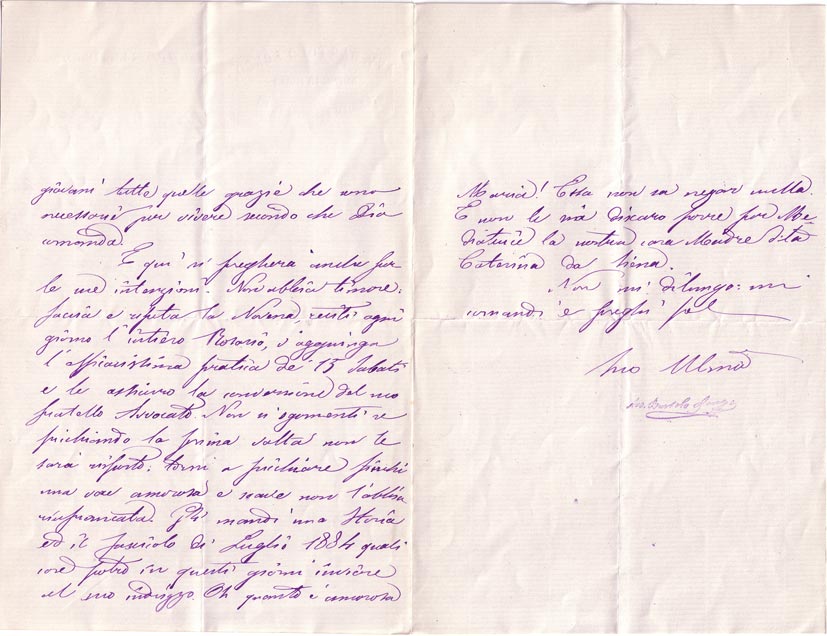 giovani tutte quelle grazie che sono
necessarie per vivere secondo che Dio
comanda.
E qui si pregherà anche per
le sue intenzioni. Non abbia timore:
faccia e ripeta la Novena, reciti ogni
giorno l'intiero Rosario, v'aggiunga
l'efficacissima pratica de' 15 Sabati
e le assicuro la conversione del suo
fratello Avvocato. Non si sgomenti se
picchiando la prima volta non le
sarà risposto: torni a picchiare finchè
una voce amorosa e soave non l'abbia
rinfrancata. Gli mandi una Storia
ed il fascicolo di Luglio 1884 quali
cose potrò in questi giorni inviare
al suo indirizzo. Oh quanto è amorosa
Maria! Essa non sa negar nulla.
E non le sia discaro porre per Me-
diatrice la nostra cara Madre S.ta
Caterina da Siena.
Non mi dilungo: mi
comandi e preghi pel
Suo Umo
Bartolo